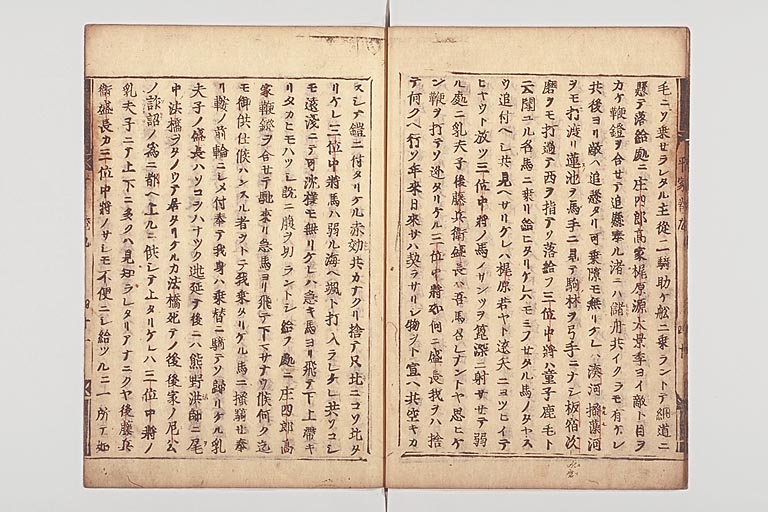 毛ニソ乗セラレタル主從二騎助ケ舩ニ乗ラントテ細道ニ
懸テ落給處ニ庄四郎高家梶原源太景季ヨイ敵ト目ヲ
カケ鞭鐙ヲ合セテ追懸奉ル渚ニハ諸舟共イクラモ有ケレ
共後ヨリ敵ハ追懸タリ可乗隙モ無リケレハ湊河藻河
ヲモ打渡リ蓮池ヲ馬手ニ見テ駒林ヲ弓手ニナシ板宿次
磨ヲモ打過テ西ヲ指テソ落給フ三位中將ハ童子鹿毛ト
云聞ユル名馬ニ乗リ給ヒタリケレハモミフセタル馬ノタヤス
ウ追付ヘシ共見ヘサリケレハ梶原若ヤト遠矢ニヨツヒイテ
ヒヤウト放ツ三位中將ノ馬ノサンツヲ箆深ニ射サセテ弱
ル處ニ乳夫子後藤兵衛盛長ハ吾馬召レナントヤ思ヒケ
ン鞭ヲ打テソ逃タリケル三位中將如何ニ盛長我ヲハ捨
テ何クヘ行ソ年来日来サハ契ラサリシ物ヲト宣ヘ共空キカ
スシテ鎧ニ付タリケル赤共カナクリ捨テ只北ニコソ北タ
リケレ三位中將馬ハ弱ル海ヘ颯ト打入ラレケレ共ソコシ
モ遠淺ニテ可沈樣モ無リケレハ急キ馬ヨリ飛テ下上帶キ
リタカヒモハツシ既ニ腹ヲ切ラントシ給フ處ニ庄四郎高
家鞭鐙ヲ合セテ馳來リ急馬ヨリ飛テ下マサナウ候何ク迄
モ御供仕候ハンスル者ヲトテ我乗タリケル馬ニ搔乗セ奉
リ鞍ノ前輪ニシメ付奉テ我身ハ乗替ニテソ歸リケル乳
夫子ノ盛長ハソコヲハナツク迯延テ後ニハ熊野法師ニ尾
中法橋ヲタノウテ居タリケルカ法橋死テノ後後家ノ尼公
ノ訴詔ノ為ニ都ヘ上ルニ供シテ上タリケレハ三位中將ノ
乳夫子ニテ上下ニ多クハ見知ラレタリアナニクヤ後藤兵
衛盛長カ三位中將ノサシモ不便ニシ給ツルニ一所テ如